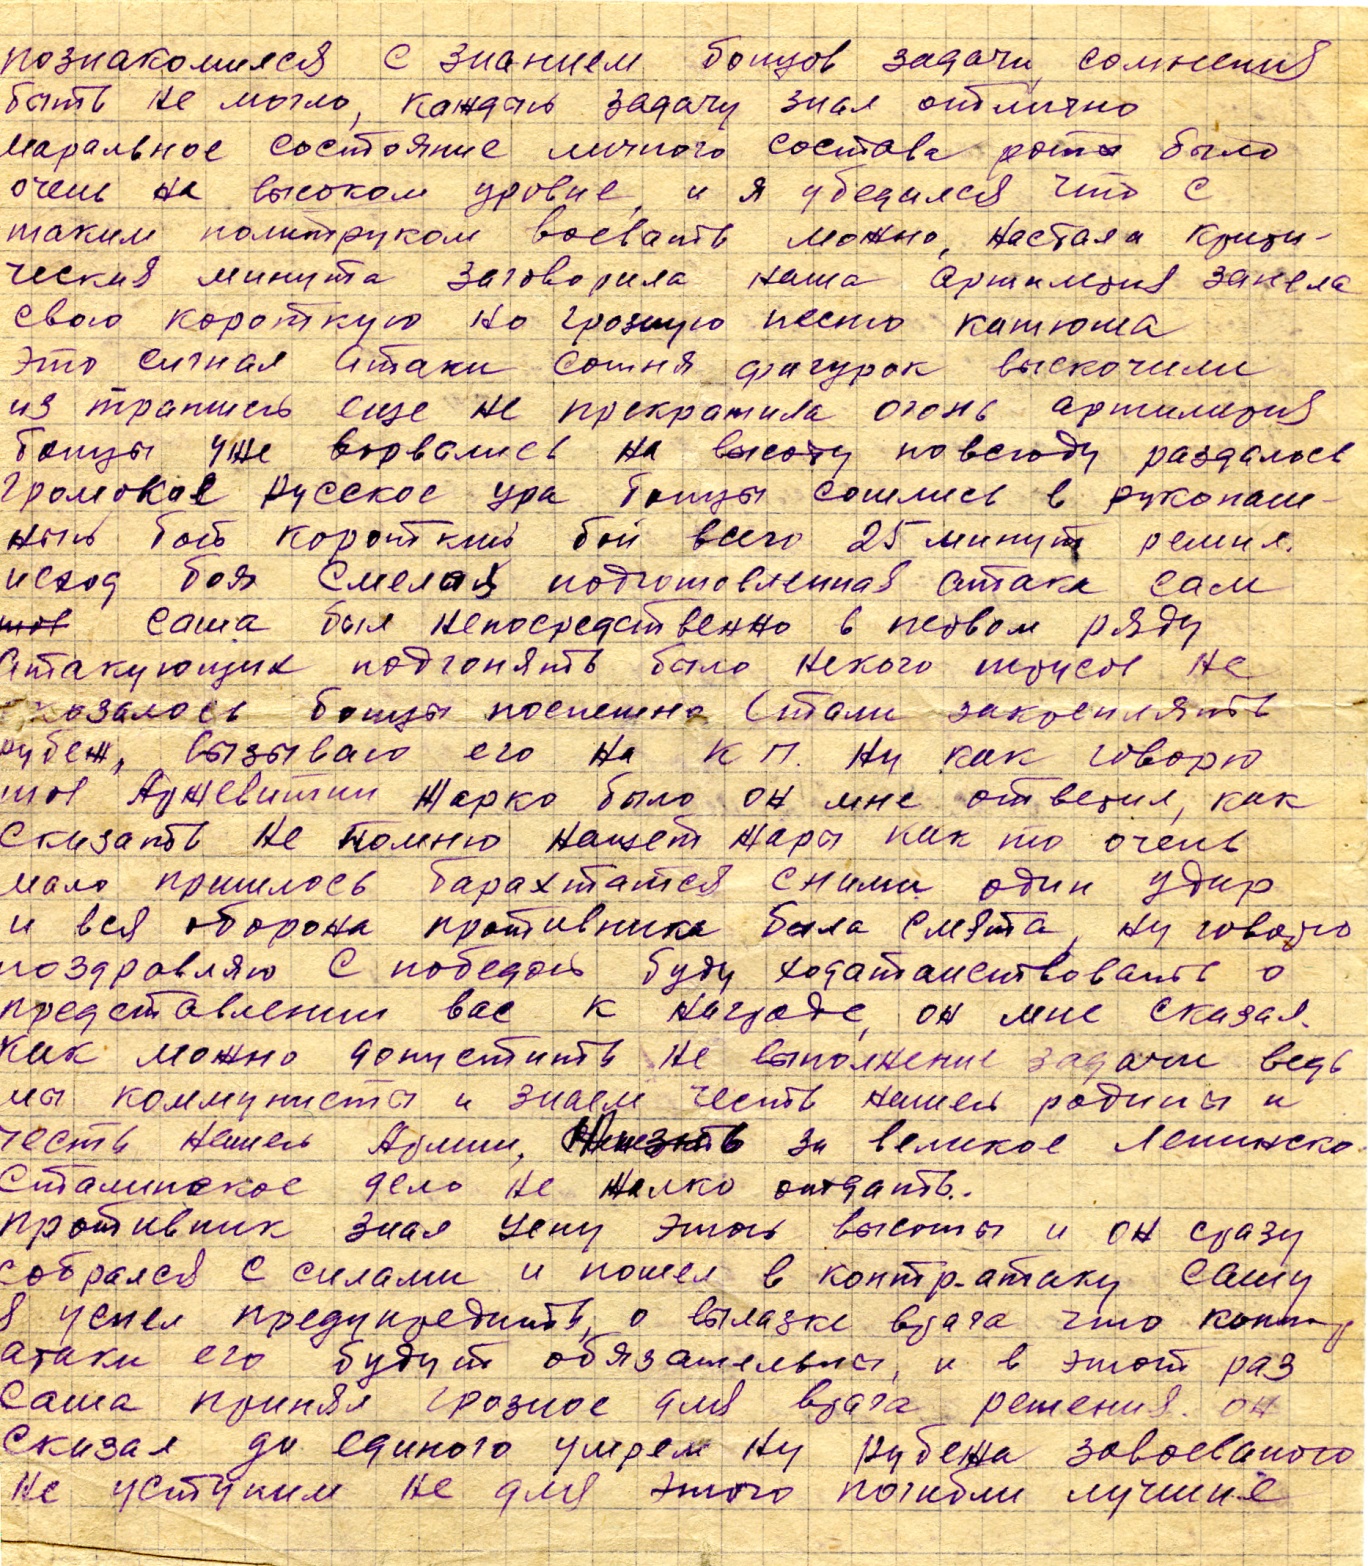 познакомился с знанием бойцов задачи, сомнения
быть не могло, каждый задачу знал отлично
маральное состояние личного состава роты было
очень на высоком уровне, и я убедился что с
таким политруком воевать можно, настала крити-
ческия минута заговорила наша артилерия запела
свою короткую но грозную песню катюша
это сигнал атаки сотня фигурок выскочили
из траншей еще не прекратила огонь артилерия
бойцы уже ворвались на высоту повсюду раздалось
громокое русское ура бойцы сошлись в рукопаш-
ный бой короткий бой всего 25 минут решил.
исход боя смелая подготовленная атака сам
тов саша был непосредственно в первом ряду
атакующих подгонять было некого трусов не
оказалось бойцы поспешно стали закреплять
рубеж, вызываю его на К П. Ну как говорю
тов жарко было он мне ответил, как
сказать не помню нащет жары как то очень
мало пришлось барахтатся сними один удар
и вся оборона противника была смята, ну говорю
поздровляю с победой буду ходатайствовать о
представлении вас к награде, он мне сказал.
Как можно допустить не выполнение задачи ведь
мы коммунисты и знаем честь нашей родины и
честь нашей Армии, Жизнь за великое Ленинско
Сталинское дело не жалко отдать.
Противник знал цену этой высоты и он сразу
собрался с силами и пошел в контр-атаку Сашу
я успел предупредить, о вылазке врага что контр
атаки его будут обязательны, и в этот раз
Саша принял грозное для врага решения. он
сказал до единого умрем ну рубежа завоеваного
не уступим не для этого погибли лучшие